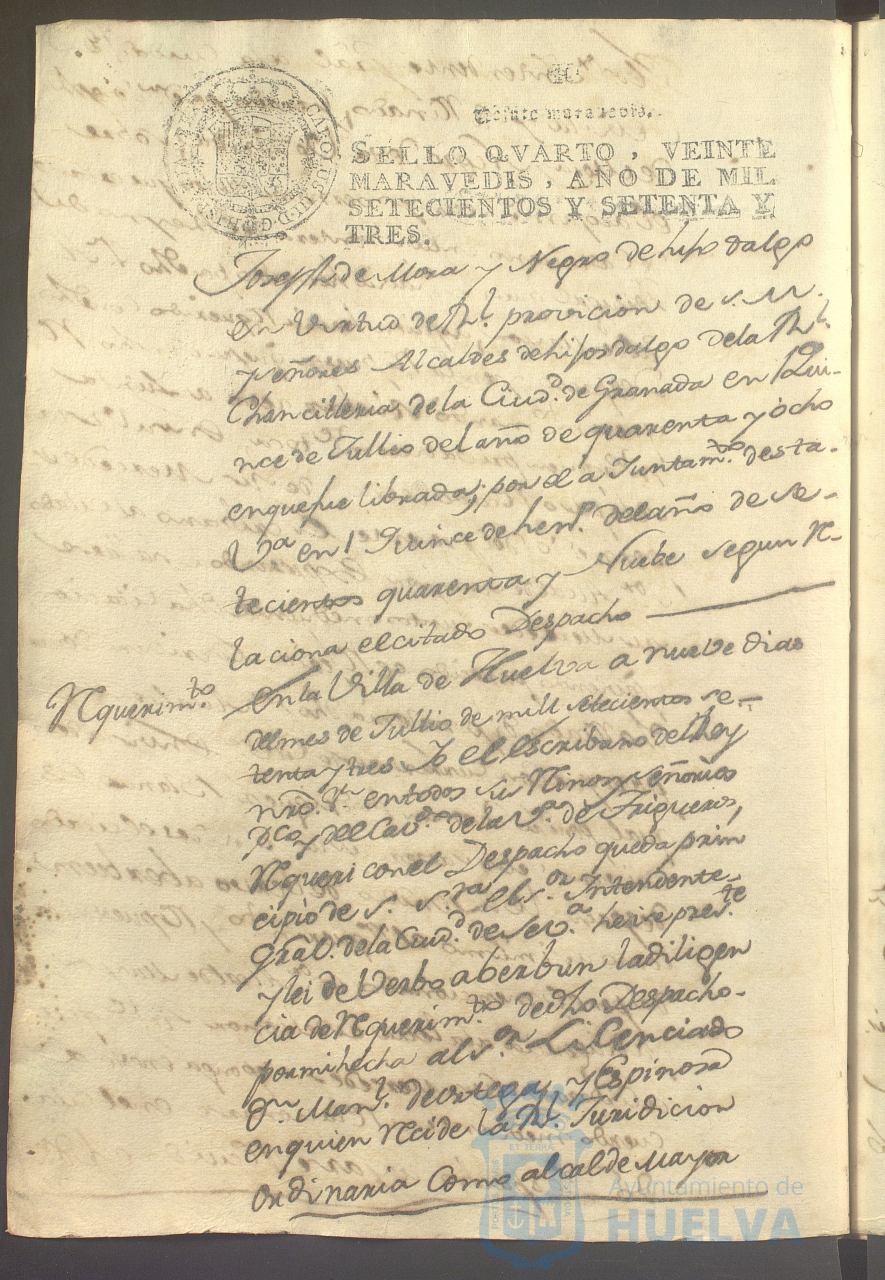 SELLO QVARTO, VEINTE
MARAVEDIS, AÑO DE MIL
SETECIENTOS Y SETENTA Y
TRES.
Joseph de Mora y Negro de hijo dalgo
en Virtud de Rl. provicion de S. M.
y señores Alcaldes de hijos dalgo de la Rl.
Chancilleria de la Ciudd. de Granada en Qui-
nce de Jullio del año de quarenta y ocho
en que fue librada; por el a Juntamto. desta
Va en Quince de hen.o del año de se-
tecientos quarenta y Nuebe segun Re-
laciona el citado Despacho
Requerimto. En la Villa de Huelva a nuebe dias
del mes de Jullio de mill setecientos se-
tenta y tres Yo el Escribano del Rey
nro. Sr. en todos su Reinos y Señorios
pco. y del Cavdo. de la Va. de Trigueros,
Requeri con el Despacho queda prin
cipio de S. Sria el Sor. Intendente
Gral. de la Ciudd. de Seva. heise preste
y lei de Verbo aberbun la diligen
cia de Requerimto. de dho Despacho
por mi hecha al Sor. Licenciado
Dn Manl. de Ortega y Espinosa
en quien Recide la Rl. Juridicion
Ordinaria Como alcalde Mayor
Ayuntamiento de
HUELVA